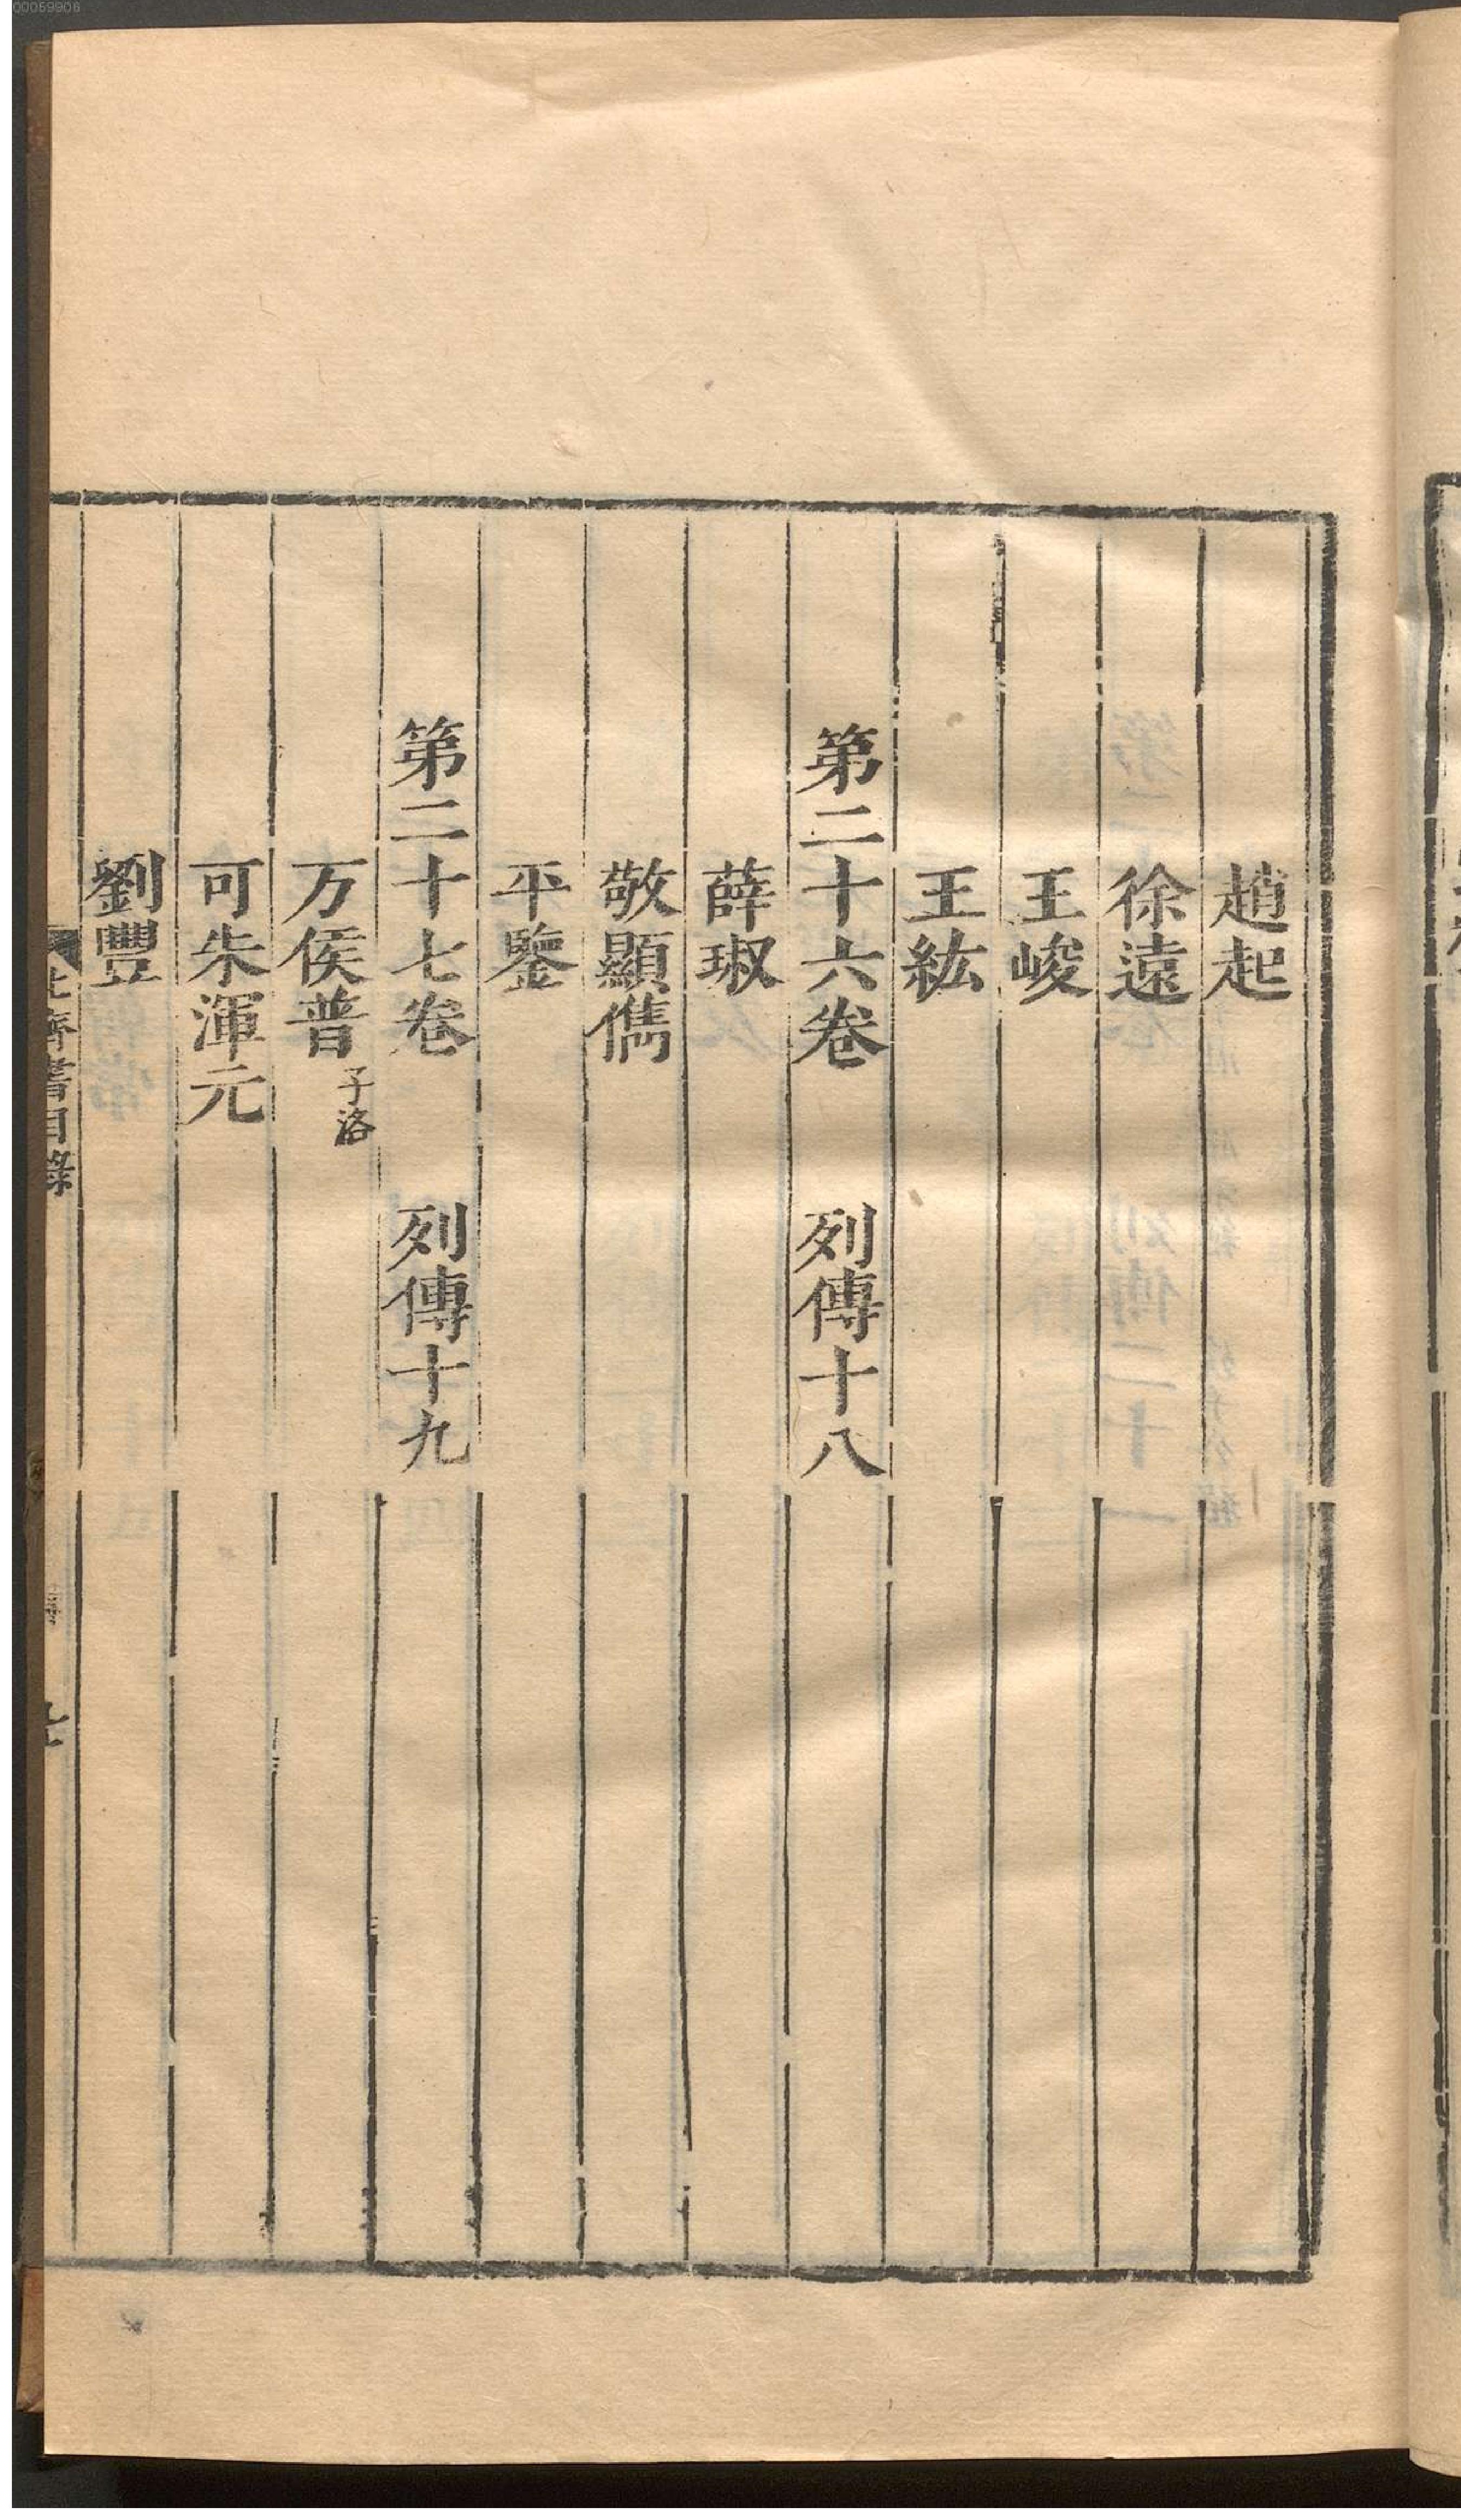 00059906
趙起
徐遠
王峻
王紘
第二十六卷 列傳十八
薛琡
敬顯儁
平鑒
第二十七卷 列傳十九
万侯普 子洛
可朱渾元
劉豐
北齊書目錄